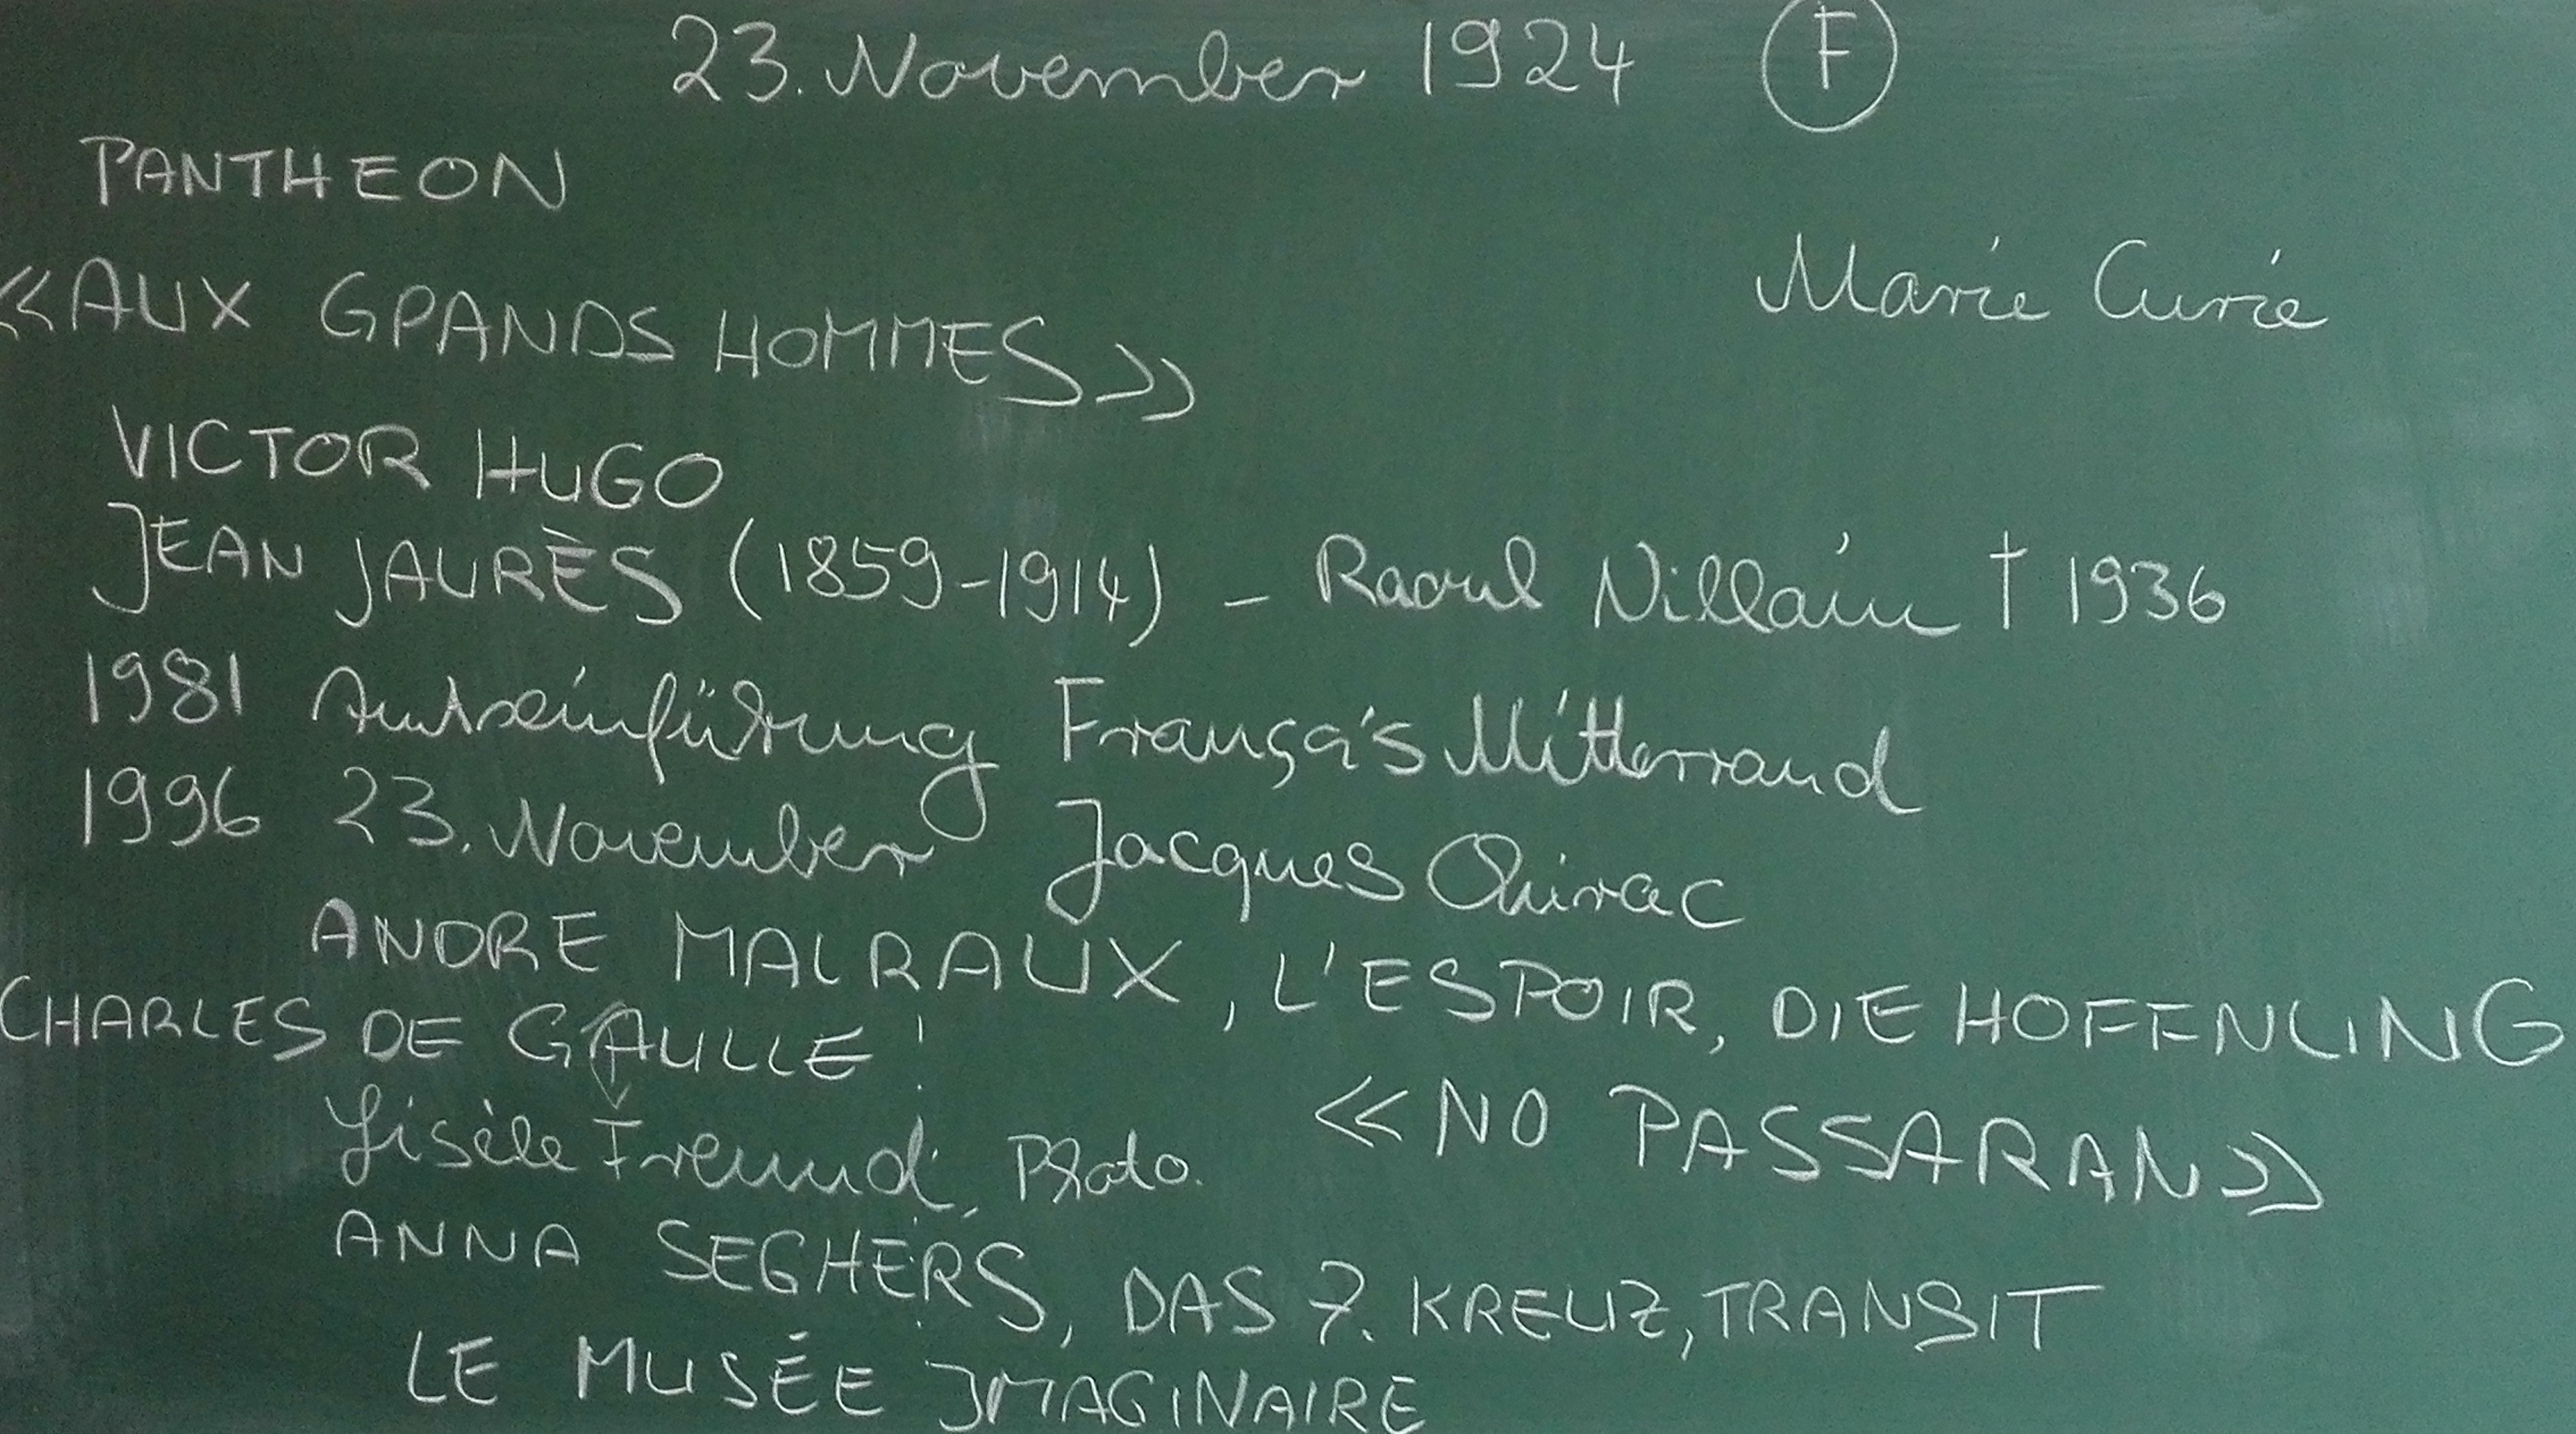 23. November 1924 F
PANTHEON
Marie Curie
«AUX GPANDS HOMMES»
VICTOR HUGO
JEAN JAURÈS (1859-1914) - Raoul Nillain † 1936
1981 Amtseinführung François Mitterrand
1996 23. November Jacques Chirac
ANDRE MALRAUX, L'ESPOIR, DIE HOFFNUNG
CHARLES DE GAULLE!
«NO PASSARAN»
Gisèle Freund, Photo.
ANNA SEGHERS, DAS 7. KREUZ, TRANSIT
LE MUSÉE IMAGINAIRE